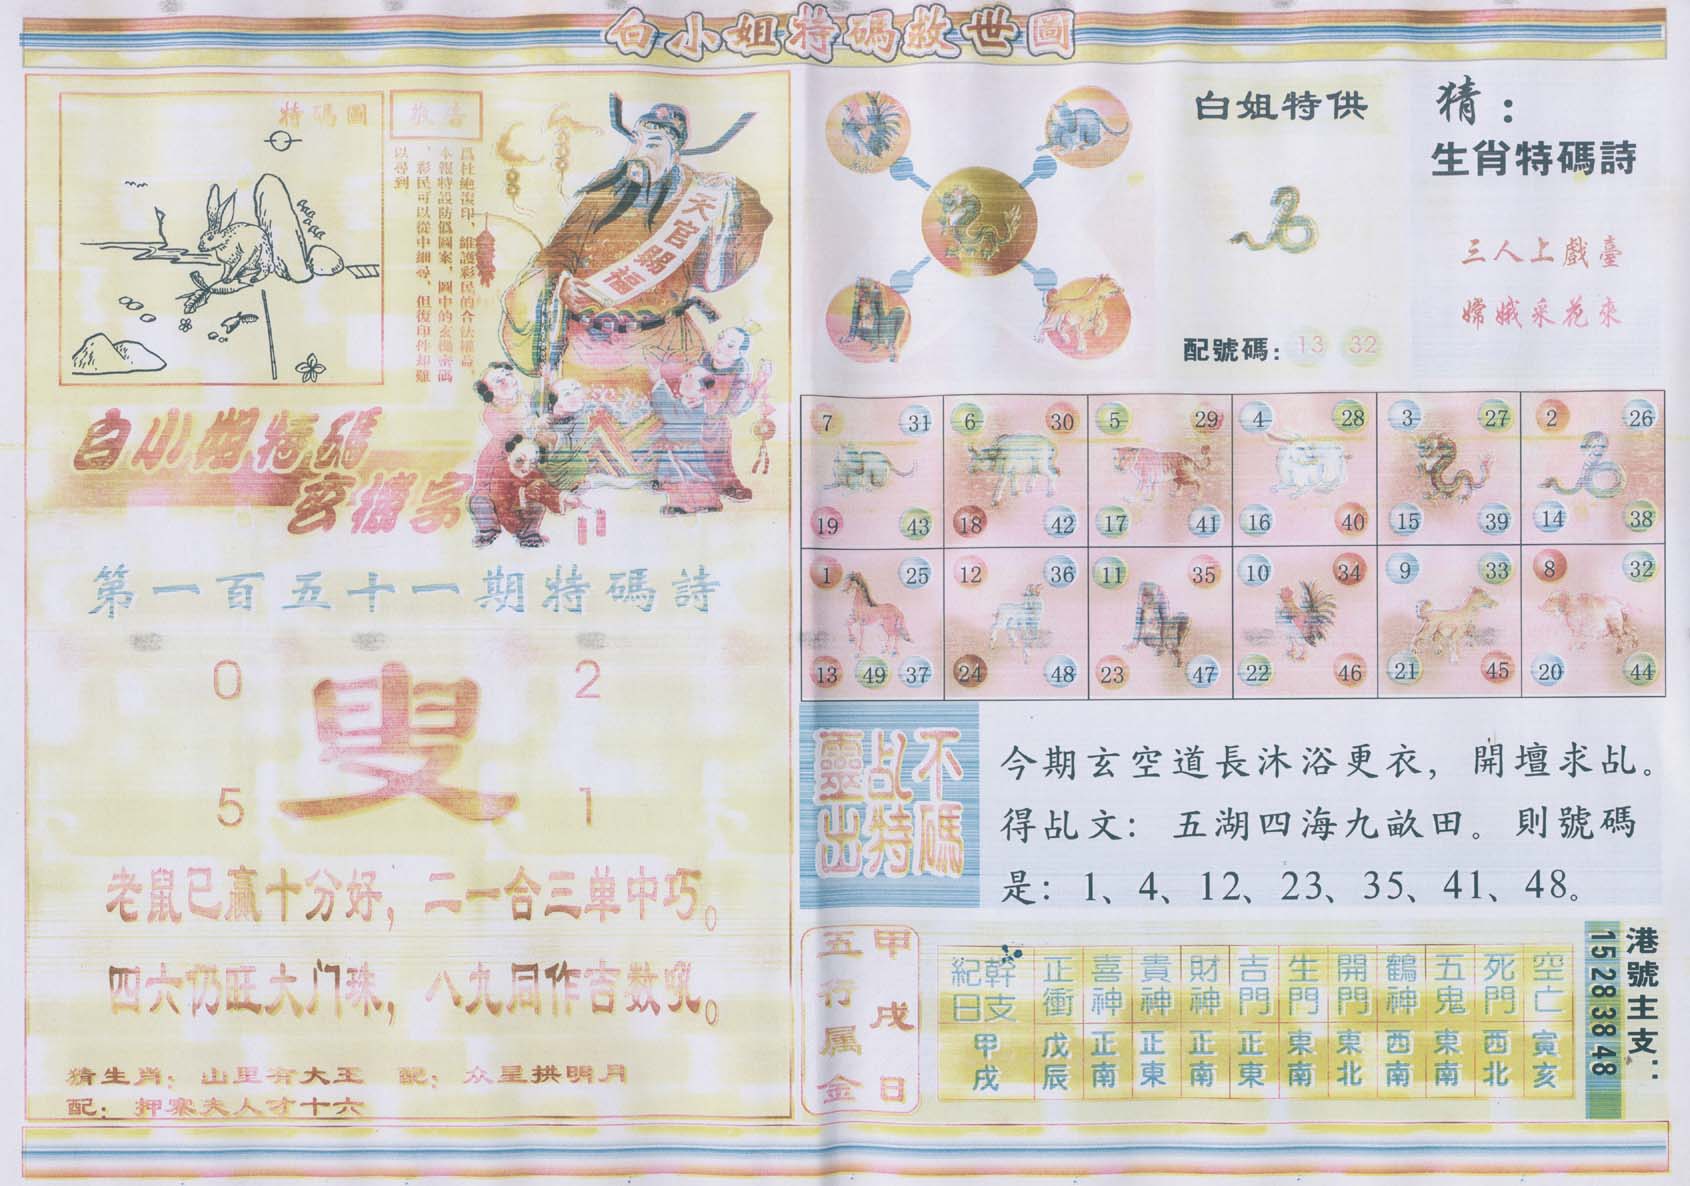 白小姐特碼救世圖
特碼圖
敬告
爲杜絶復印，維護彩民的合法權益。
本報特設防僞圖案，圖中的玄機密碼
，彩民可以從中細尋，但復印件却難
以尋到
天官賜福
白小姐特碼
玄機字
第一百五十一期特碼詩
0
2
叟
5
1
老鼠已赢十分好，二一合三单中巧。
四六仍旺大门珠，八九同作吉数吼。
猜生肖：山里有大王 配：众星拱明月
配：押寨夫人才十六
白姐特供
配號碼：13 32
猜：
生肖特碼詩
三人上戲臺
嫦娥采花來
7 31 6 30 5 29 4 28 3 27 2 26
19 43 18 42 17 41 16 40 15 39 14 38
1 25 12 36 11 35 10 34 9 33 8 32
13 49 37 24 48 23 47 22 46 21 45 20 44
不碼
乩特
靈出
今期玄空道長沐浴更衣，開壇求乩。
得乩文：五湖四海九畝田。則號碼
是：1、4、12、23、35、41、48。
甲戌日
五行属金
紀日幹支 正衝 喜神 貴神 財神 吉門 生門 開門 鶴神 五鬼 死門 空亡
甲戌 戊辰 正南 正東 正南 正東 東南 東北 西南 東南 西北 寅亥
港號主支：
15 28 38 48